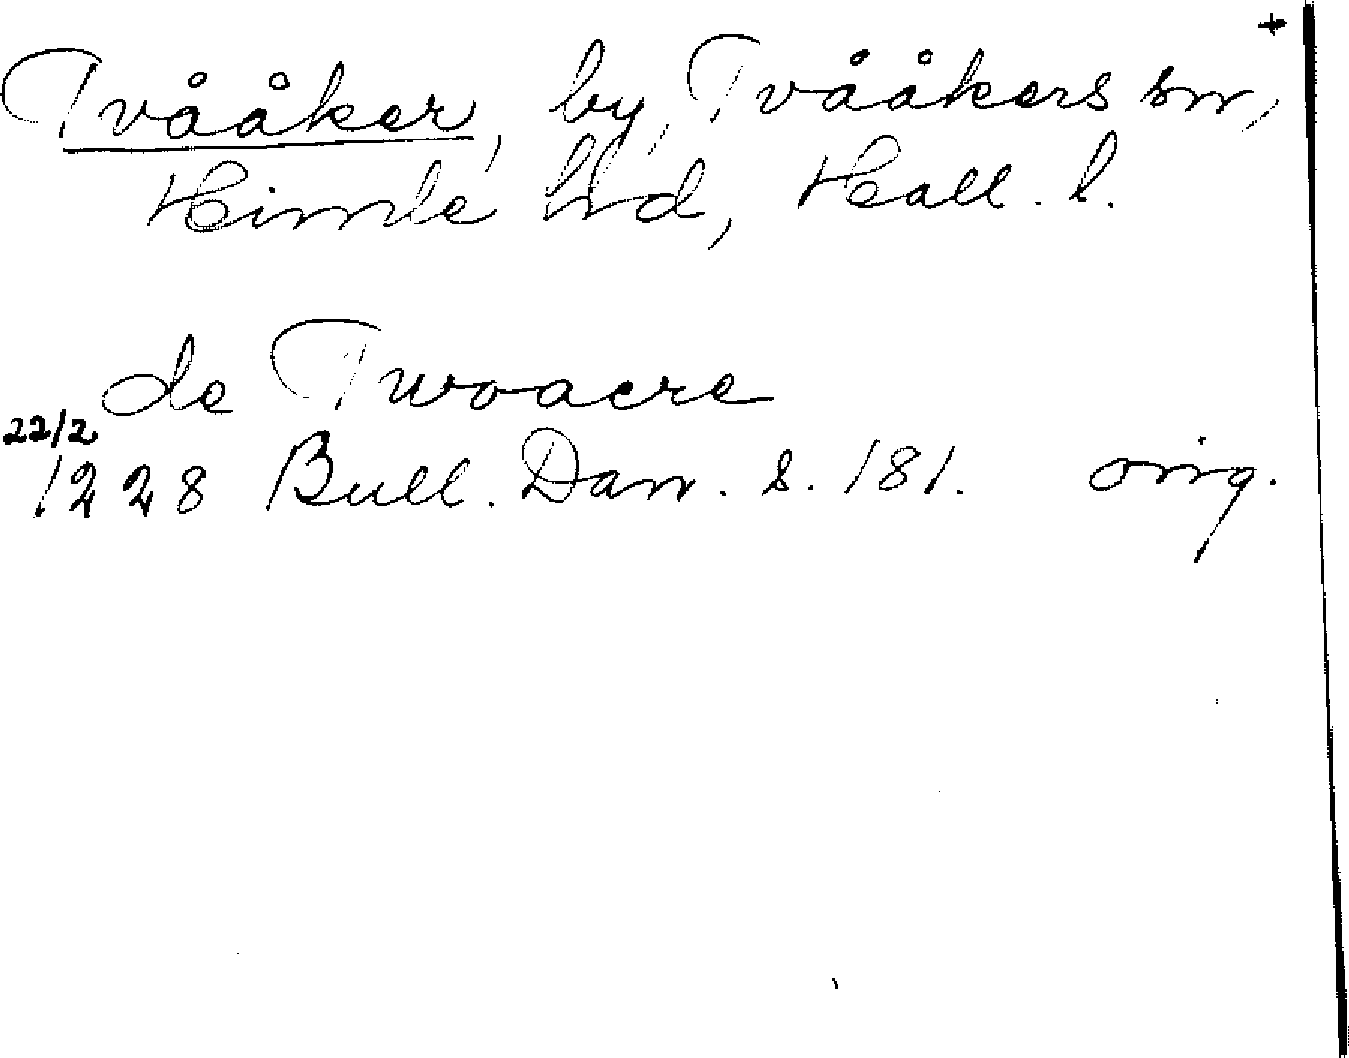 +
Tvååker, by, Tvååkers sn,
Himle hd, Hall. l.
de Twoacre
22/2
1228 Bull. Dan. s. 181. orig.